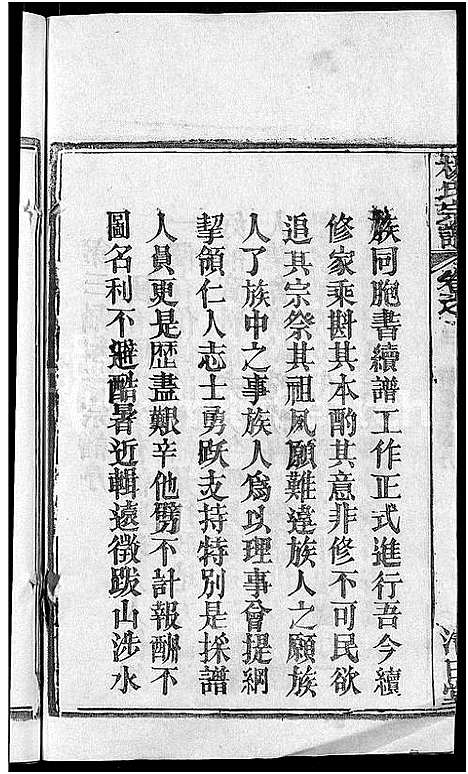 族同胞書續譜工作正式進行吾今續
修家乘斟其本酌其意非修不可民欲
追其宗祭其祖夙願難違族人之願族
人了族中之事族人為以理事會提綱
挈領仁人志士勇跃支持特別是採譜
人員更是歷盡艱辛他劈不計報酬不
圖名利不避酷暑近輯遠徵跋山涉水
氏宗譜